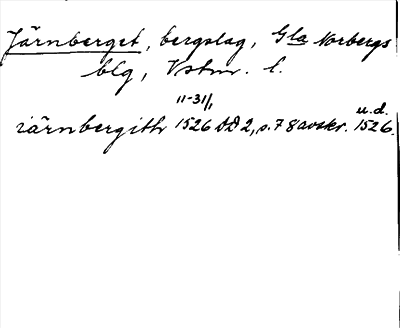 Järnberget, bergslag, Gla Norbergs
blg, Vstm. l.
11-31/1
u.d.
iärnbergith 1526 DD 2, s. 78 avskr. 1526.